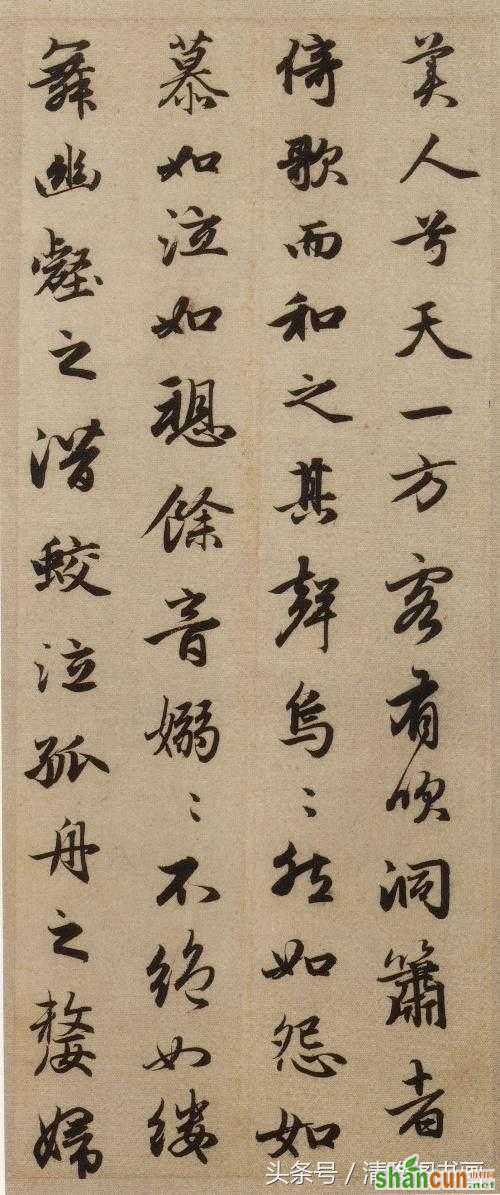 美人兮天一方客有吹洞簫者
倚歌而和之其聲烏〻然如怨如
慕如泣如愬餘音嫋〻不絕如縷
舞幽壑之潛蛟泣孤舟之嫠婦
头条号 / 清
shancun
.net